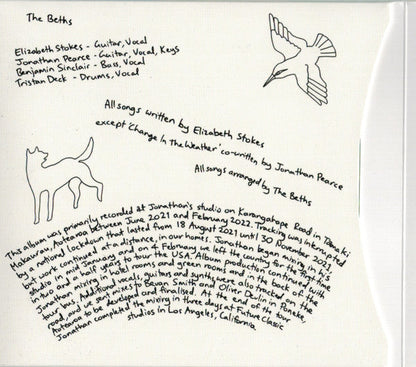 The Beths
Elizabeth Stokes - Guitar, Vocal
Jonathan Pearce - Guitar, Vocal, Keys
Benjamin Sinclair - Bass, Vocal
Tristan Deck - Drums, Vocal
All songs written by Elizabeth Stokes
except 'Change In The Weather' co-written by Jonathan Pearce
All songs arranged by The Beths
This album was primarily recorded at Jonathan's studio on Karangahape Road in Tāmaki
Makaurau, Aotearoa between June 2021 and February 2022. Tracking was interrupted
by a national lockdown that lasted from 18 August 2021 until 30 November 2021,
but work continued at a distance, in our homes. Jonathan began mixing in his
studio in mid January and on 4 February we left the country for the first time
in two and a half years to tour the USA. Album production continued with
Jonathan mixing in hotel rooms and green rooms and in the back of the
tour van. Additional vocals, guitars and synths were also tracked on the
road, and we sent mixes to Bevan Smith and Oliver Devlin in Pōneke,
Aotearoa to be developed and finalised. At the end of the tour
Jonathan completed the mixing in three days at Future Classic
studios in Los Angeles, California